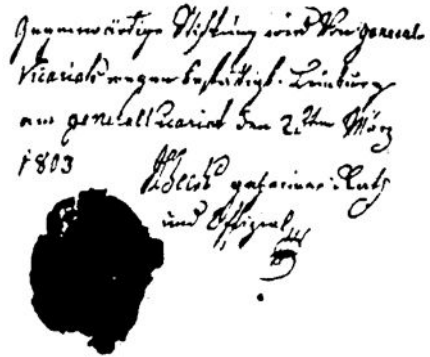 Gegenwärtige Stiftung wird Von general-
Vicariats wegen bestätigt. Limburg
am generall Vicariat den 2.ten März
1803
Beck geheimer Rath
und Offizial